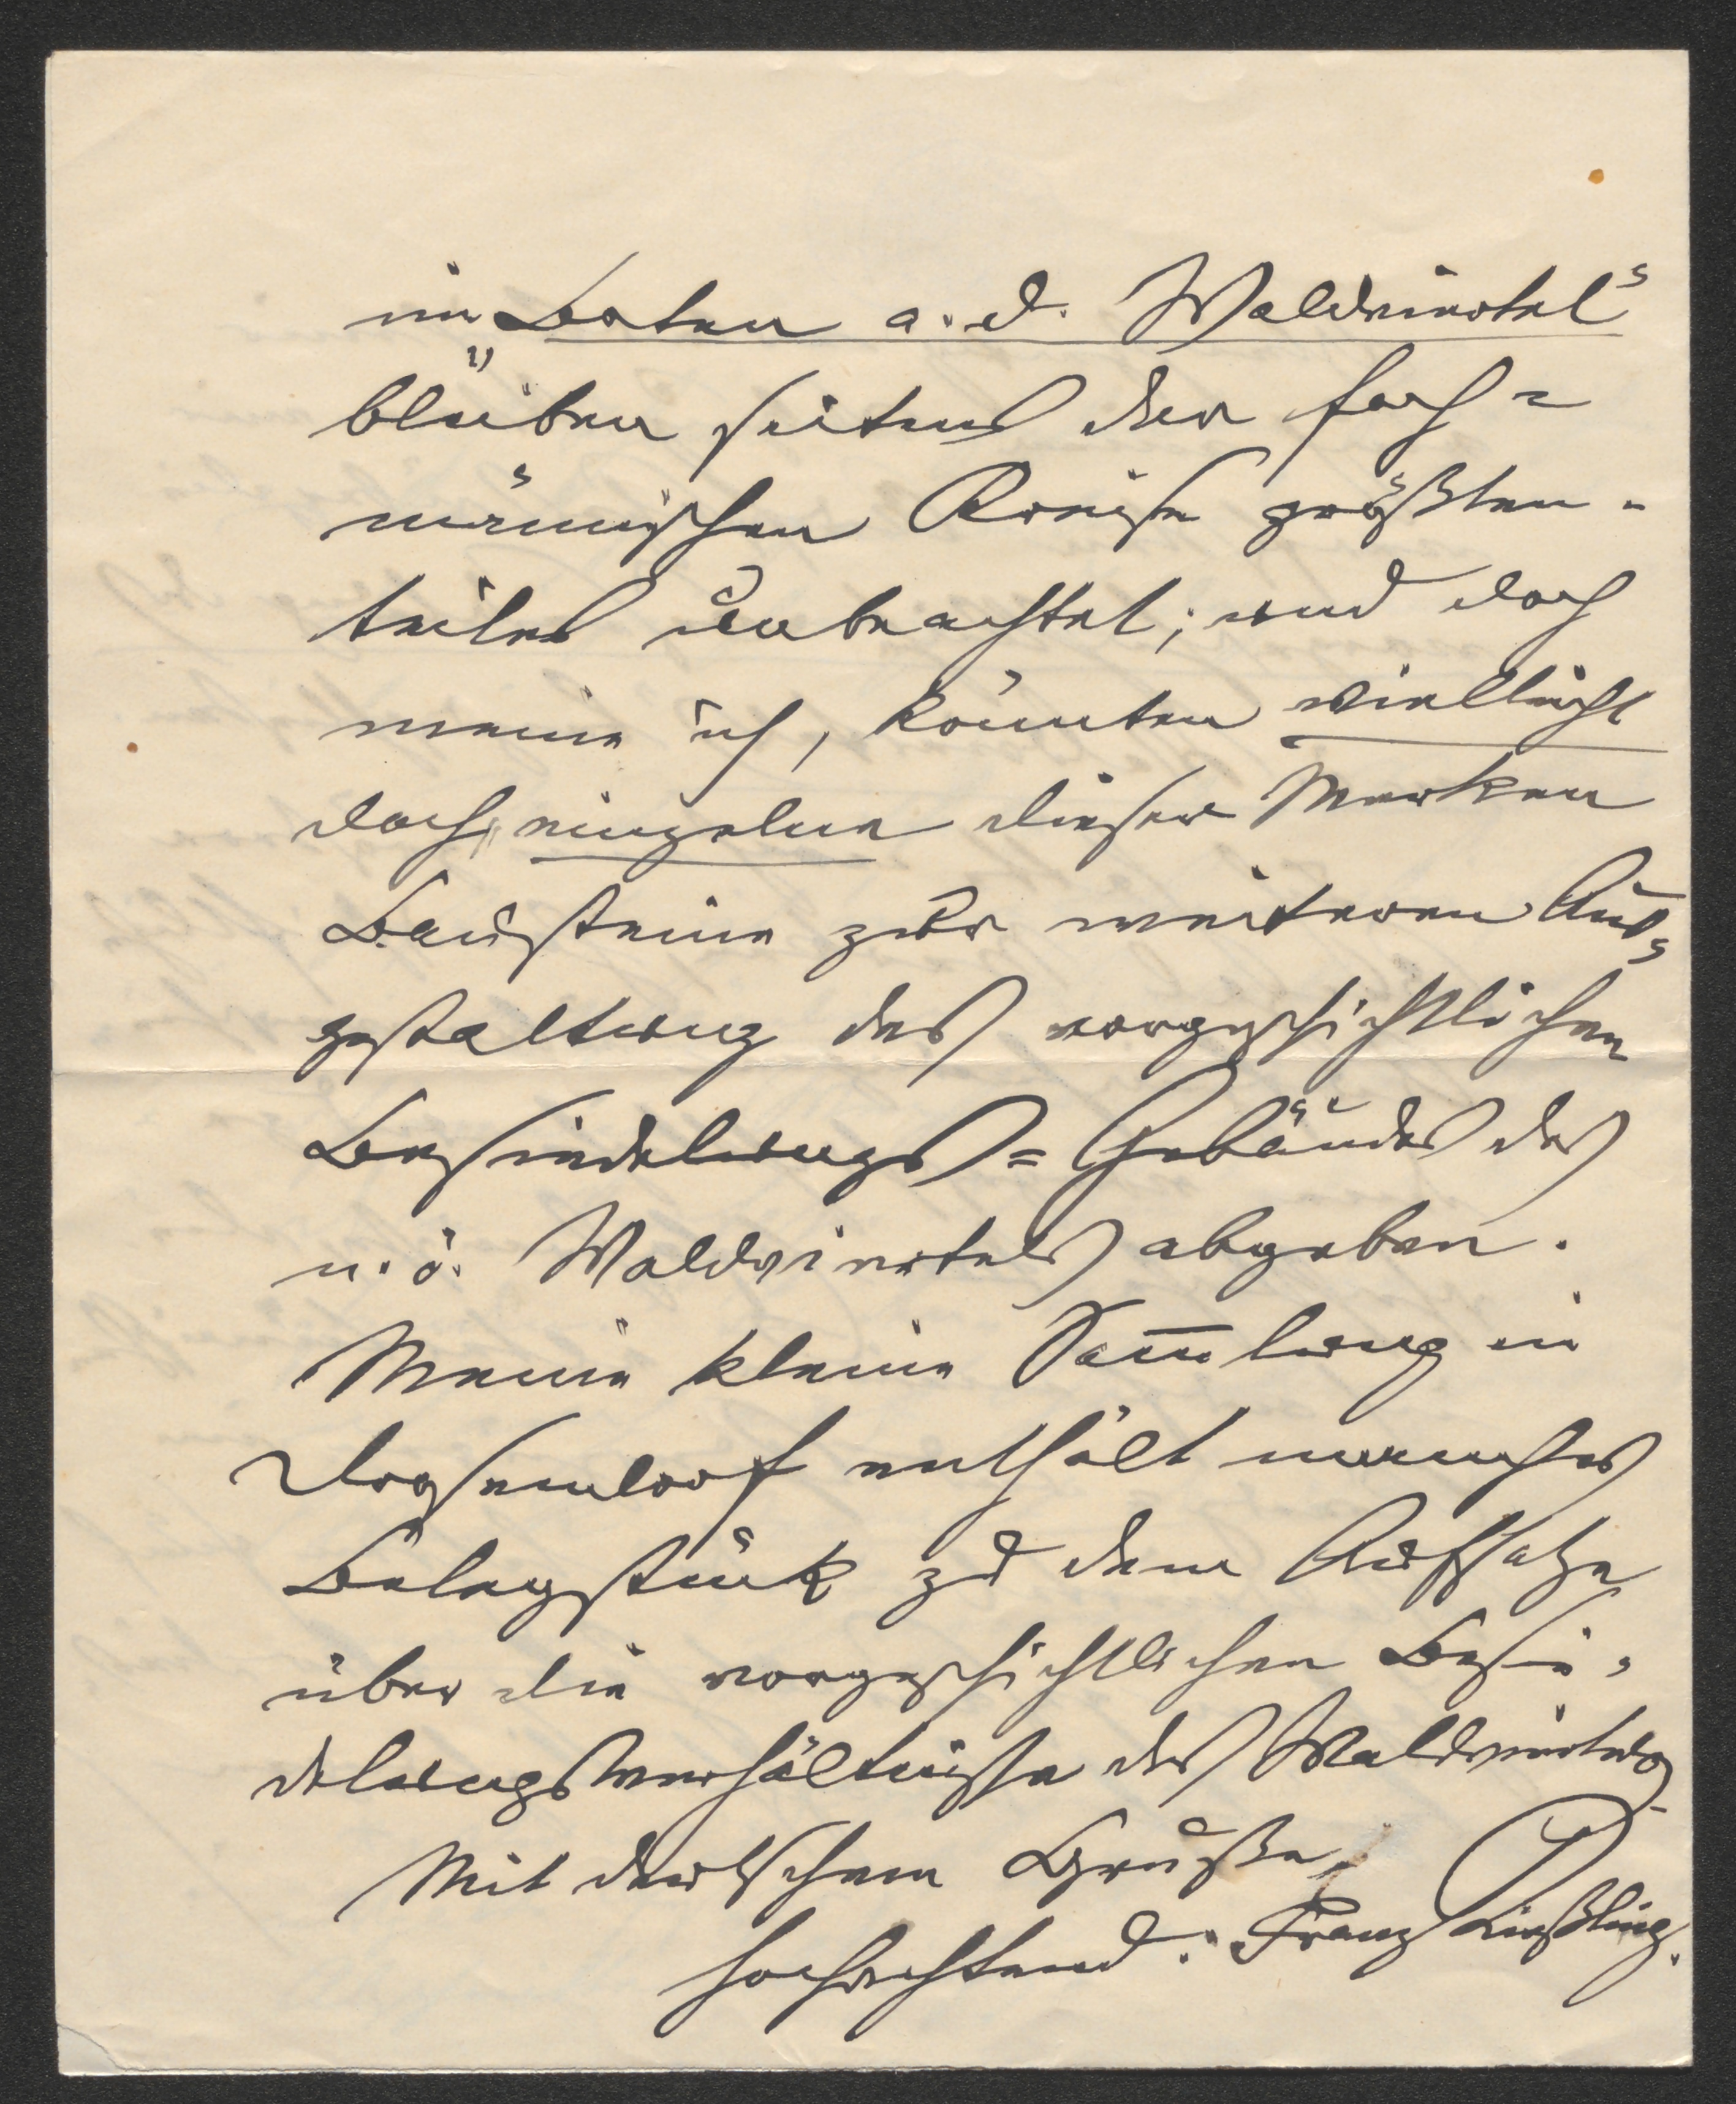 im „Boten a. d. Waldviertel“
bleiben seitens der fach=
männischen Kreise größten-
teiles unbeachtet; und doch
meine ich, könnten vielleicht
doch einzelne dieser Marken
Bausteine zur weiteren Aus-
gestaltung des vorgeschichtlichen
Besiedelungs=Gebäudes des
n. ö. Waldviertels abgeben.
Meine kleine Sam̅lung in
Drosendorf enthält manches
Belegstück zu dem Aufsatze
über die vorgeschichtlichen Besie-
delungsverhältnisse des Waldviertels.
Mit deutschem Gruße,
hochachtend: Franz Kießling.